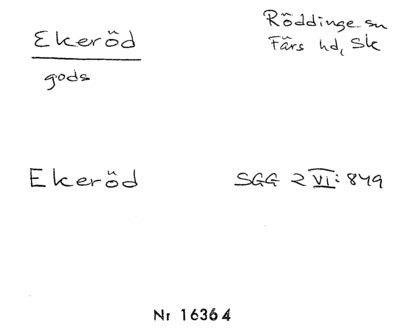 Ekeröd
Röddinge sn
Färs hd, Sk
gods
Ekeröd
SGG 2 VI: 849
Nr 16364